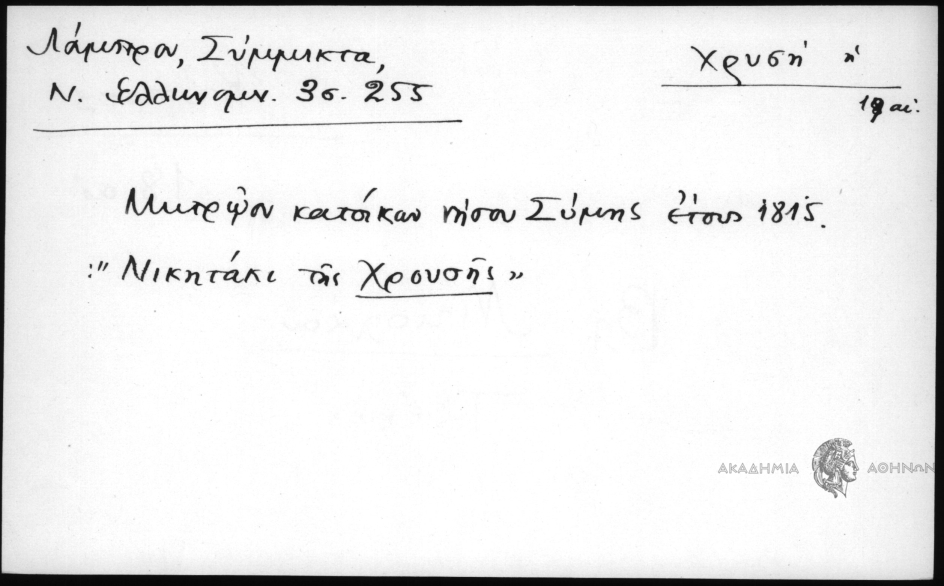 Λάμπρου, Σύμμικτα,
Ν. Ελληνομν. 3σ. 255
Χρυσή ἡ
19 αἰ.
Μητρῷον κατοίκων νήσου Σύμης ἔτους 1815.
:" Νικητάκι τῆς Χρουσῆς "
ΑΚΑΔΗΜΙΑ ΑΘΗΝΩΝ